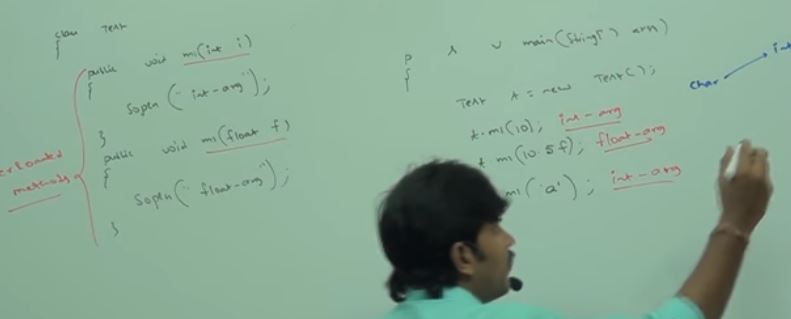 class Test
{
public void m1(int i)
{
Sopln("int-arg");
}
public void m1(float f)
{
Sopln("float-arg");
}
erloaded
methods
p s v main(String[] args)
{
Test t = new Test();
t.m1(10); int-arg
t.m1(10.5f); float-arg
m1('a'); int-arg
char int